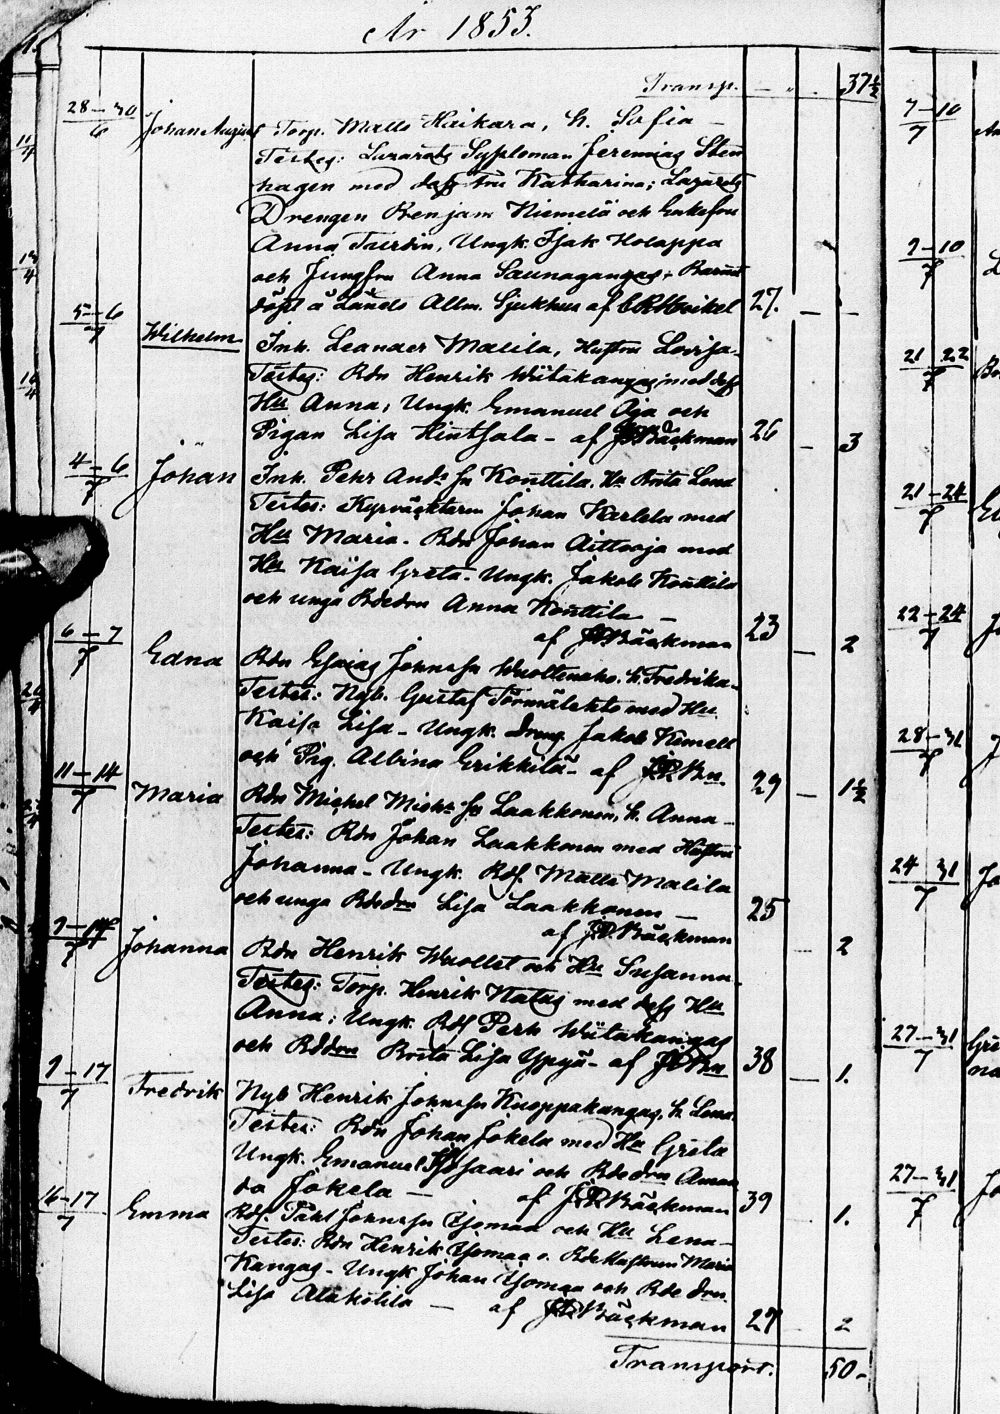 År 1853.
Transp. — „ 37½
28–30/6 Johan August Torp. Matts Haikara, h. Sofia —
Testes: Lazarets Sysploman Jeremias Sten
hagen med dess fru Katharina; Lazarets
Drengen Benjam Niemelä och Enkefru
Anna Tverdin, Ungk. Isak Holappa
och Jungfru Anna Saunagangas, Barnet
döpt å Länds Allm. Sjukhus af 27. — —
5–6/7 Wilhelm Inh. Leander Malila, Hustru Lovisa.
Testes: Bdn Henrik Wiitakangas med dess
Hu Anna; Ungk. Emanuel Aja och
Pigan Lisa Hintsala – af JD Bäckman 26 — 3
4–6/7 Johan Inh. Pehr And:sn Konttila, Hu Brita Lena
Testes: Kyrväcktaren Johan Karlela med
Hu Maria. Bdn Johan Aittooja med
Hu Kaisa Greta. Ungk. Jakob Konttila
och unga Bdedrn Anna Konttila —
af JD Bäckman 23 — 2
6–7/7 Edna Bdn Esaias Johnssn Wuoltenaho, h. Fredrika.
Testes: Nyb. Gustaf Törmälehto med Hu
Kaisa Lisa – Ungk. dreng Jakob Kemell
och Pig. Albina Erikkilä – af JD Bn 29 — 1½
11–14/7 Maria Bdn Michel Michssn Laakkonen, h. Anna –
Testes: Bdn Johan Laakkonen med Hustru
Johanna – Ungk. Bds. Matts Malila
och unga Bdedrn Lisa Laakkonen —
af JD. Bäckman 25 — 2
9–14/7 Johanna Bdn Henrik Wuollet och Hu Susanna.
Testes: Torp. Henrik Natus med dess Hu
Anna; Ungk. Bds Pehr Wiitakangas
och Bddrn Brita Lisa Yppyä – af JD Bn 38 — 1.
9–17/7 Fredrik Nyb Henrik Johnssn Kuoppakangas, h. Lena.
Testes: Bdn Johan Jokela med Hu Greta
Ungk. Emanuel Isosaari och Bdedrn Aman
da Jokela — af JD Bäckman 39 1.
16–17/7 Emma Bds. Pähl Johnssn Yjomaa och Hu Lena –
Testes: Bdn Henrik Yjomaa o. Bdehustrun Maria
Kangas – Ungk Johan Yjomaa och Bde drn
Lisa Alakotila — af JD Bäckman 27 2
Transport. 50.
7–10/7
9–10/7
21/22/7
21–24/7
22–24/7
28–31/7
24 31/7
27–31/7
27–31/7